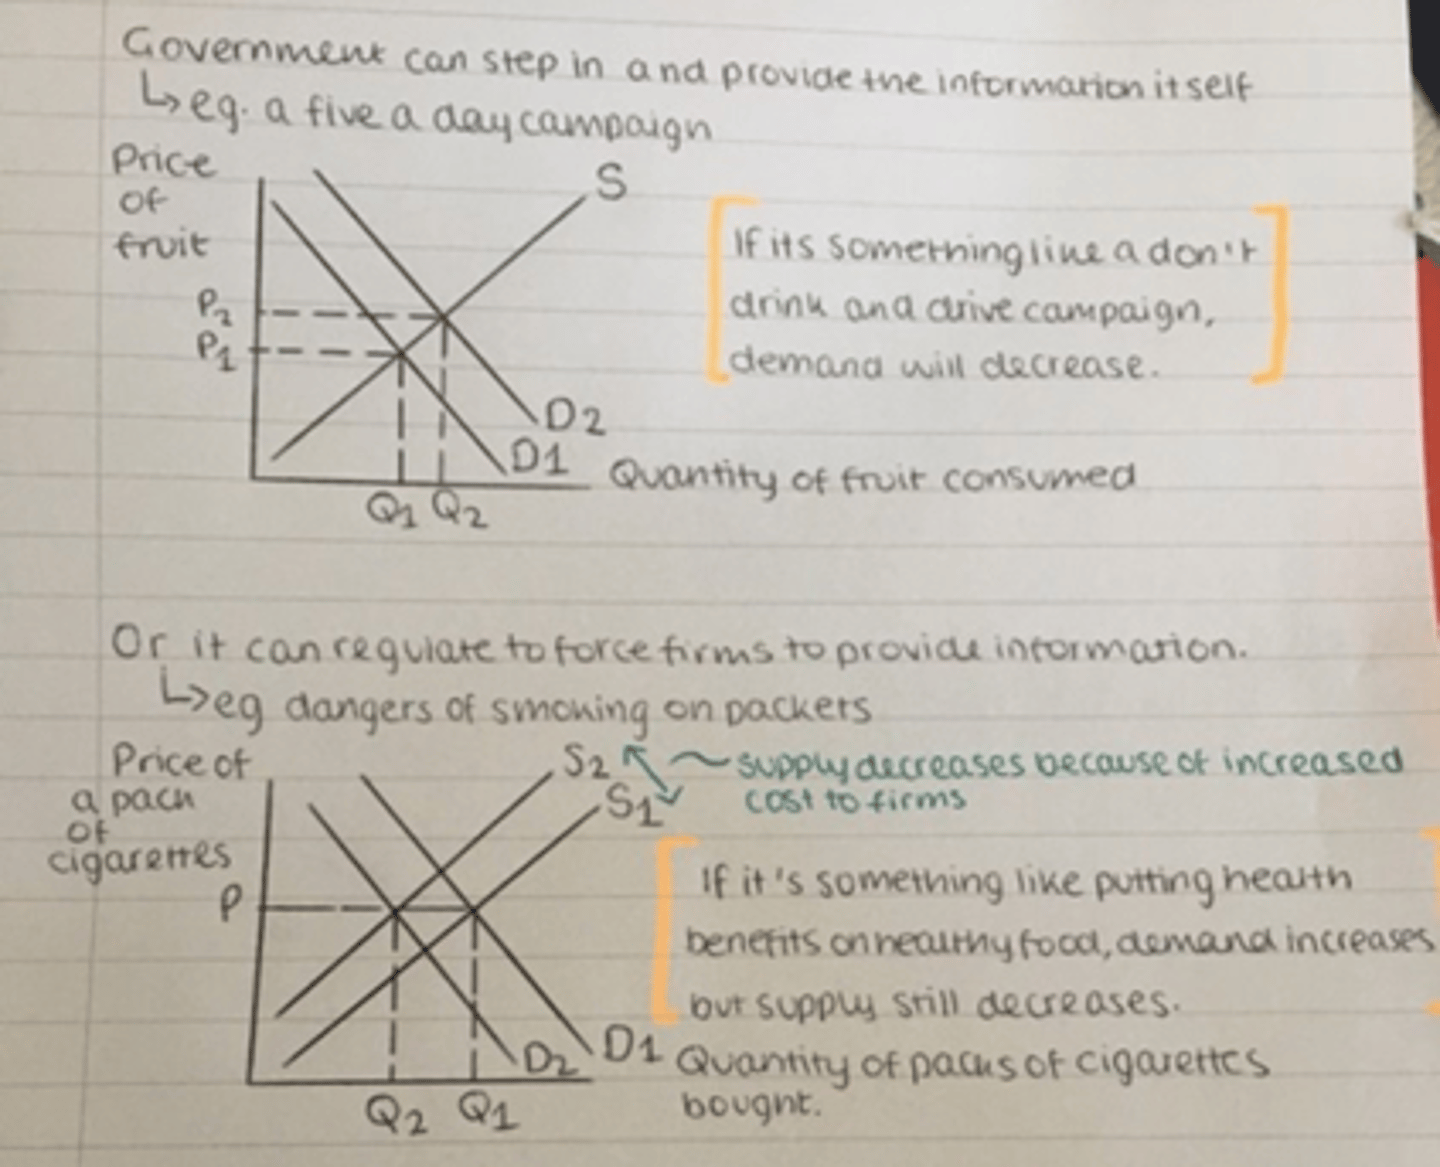 Government can step in and provide the information itself
↳ eg. a five a day campaign
Price
of
fruit
S
P2
P1
D2
D1
Q1 Q2
Quantity of fruit consumed
If its something like a don't
drink and drive campaign,
demand will decrease.
Or it can regulate to force firms to provide information.
↳ eg dangers of smoking on packets
Price of
a pack
of
cigarettes
S2
S1
supply decreases because of increased
cost to firms
P
D2
D1
Q2 Q1
If it's something like putting health
benefits on healthy food, demand increases
but supply still decreases.
Quantity of packs of cigarettes
bought.